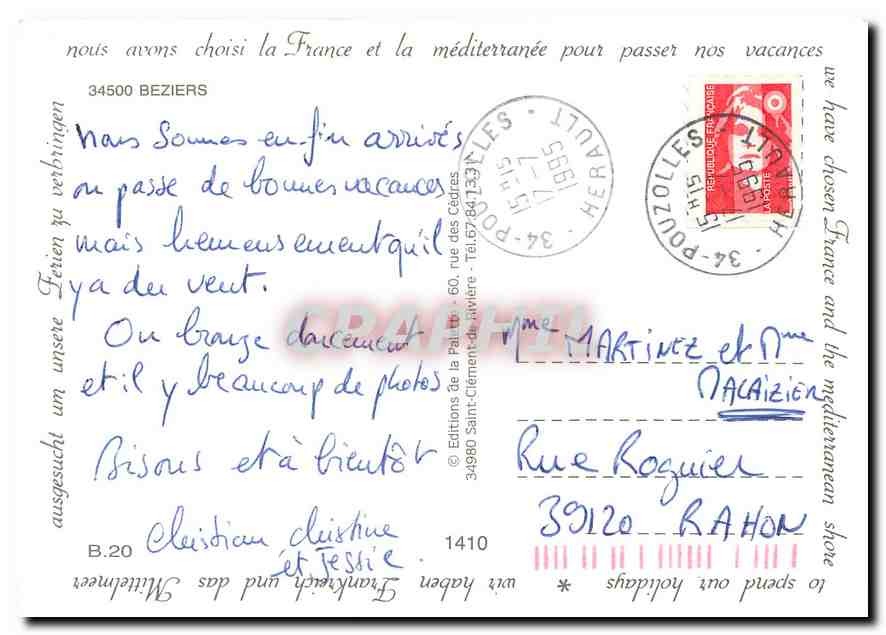 nous avons choisi la France et la méditerranée pour passer nos vacances
we have chosen France and the mediterranean shore
to spend our holidays * wir haben Frankreich und das Mittelmeer
ausgesucht um unsere Ferien zu verbringen
34500 BEZIERS
nous sommes en-fin arrivés
on passe de bonnes vacances
mais heureusement qu'il
y a du vent.
On bronze doucement
et il y beaucoup de photos
Bisous et à bientôt
Christian christine
et Jessie.
B.20
1410
© Editions de la Palette - 60, rue des Cèdres
34980 Saint-Clément-de-Rivière - Tél. 67.84.13.31
34-POUZOLLES - HERAULT -
15H15
17-7
1995
REPUBLIQUE FRANÇAISE
LA POSTE
34-POUZOLLES - HERAULT
15H15
17-7
1995
CPAPHIL
Mme MARTINEZ et Mme
MALAIZIER
Rue Roguier
39120 RAHON